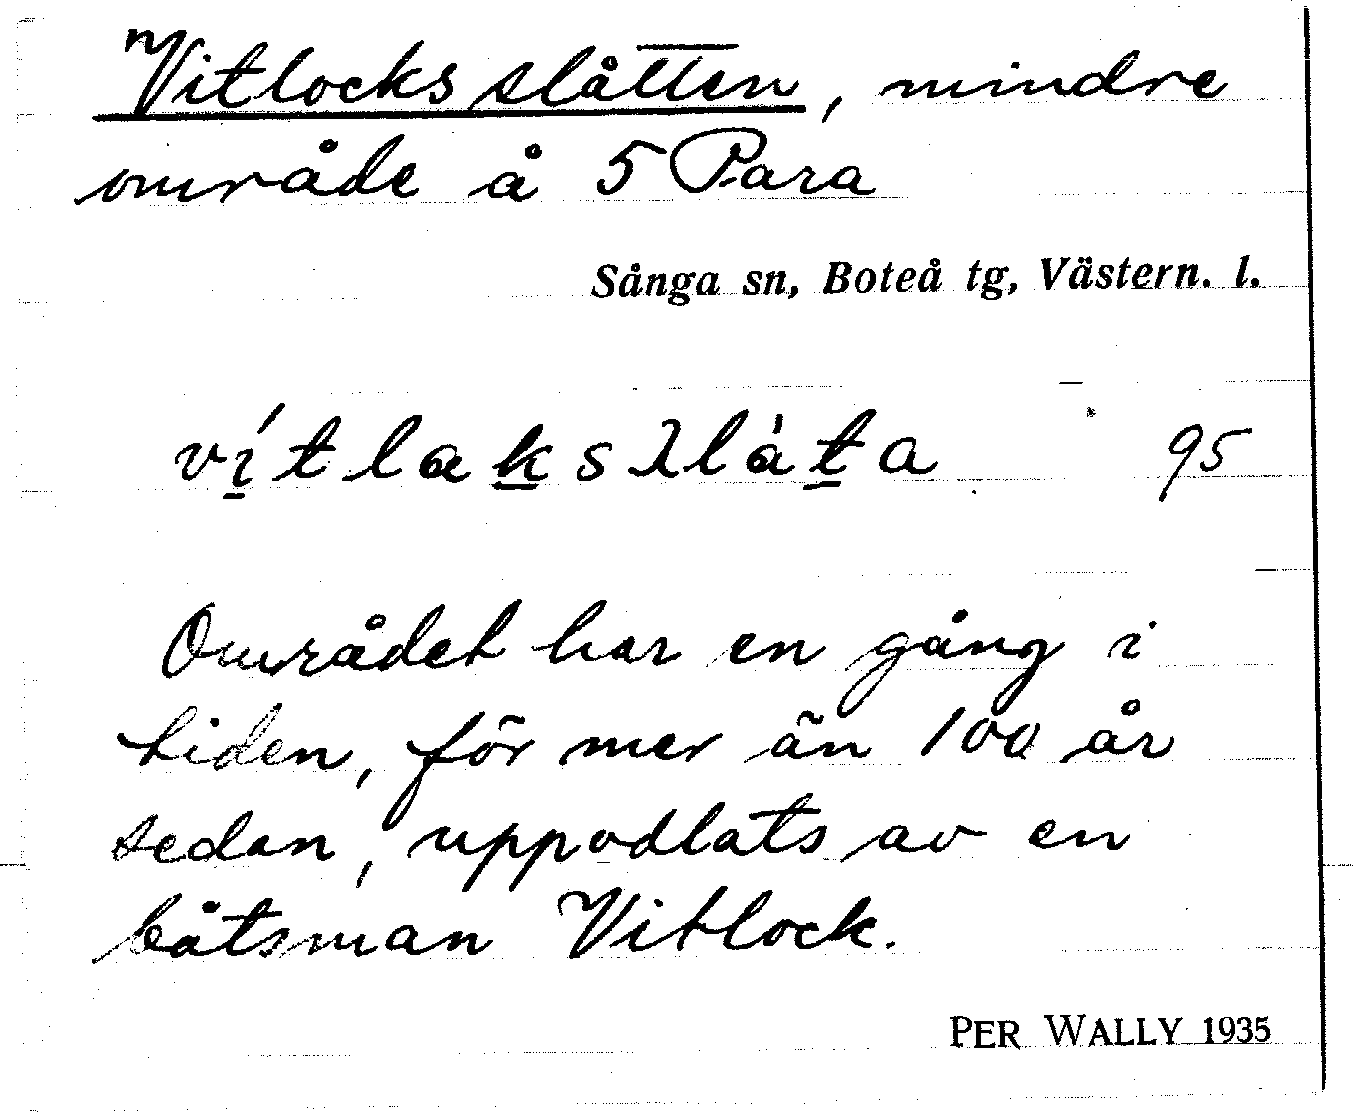 Vitlocks slåtten, mindre
område å 5 Para
Sånga sn, Boteå tg, Västern. l.
95
Området har en gång i
tiden, för mer än 100 år
sedan, uppodlats av en
båtsman Vitlock.
PER WALLY 1935